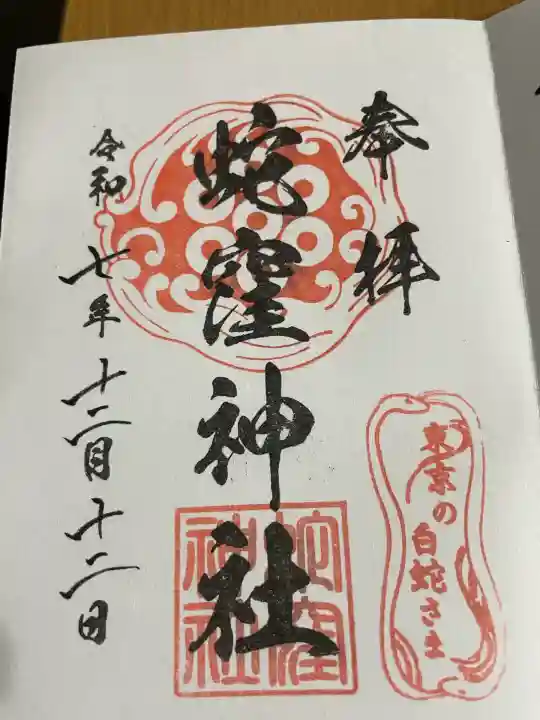 奉拝
蛇窪神社
蛇窪
神社
令和七年十二月十二日
東京の
白蛇さま